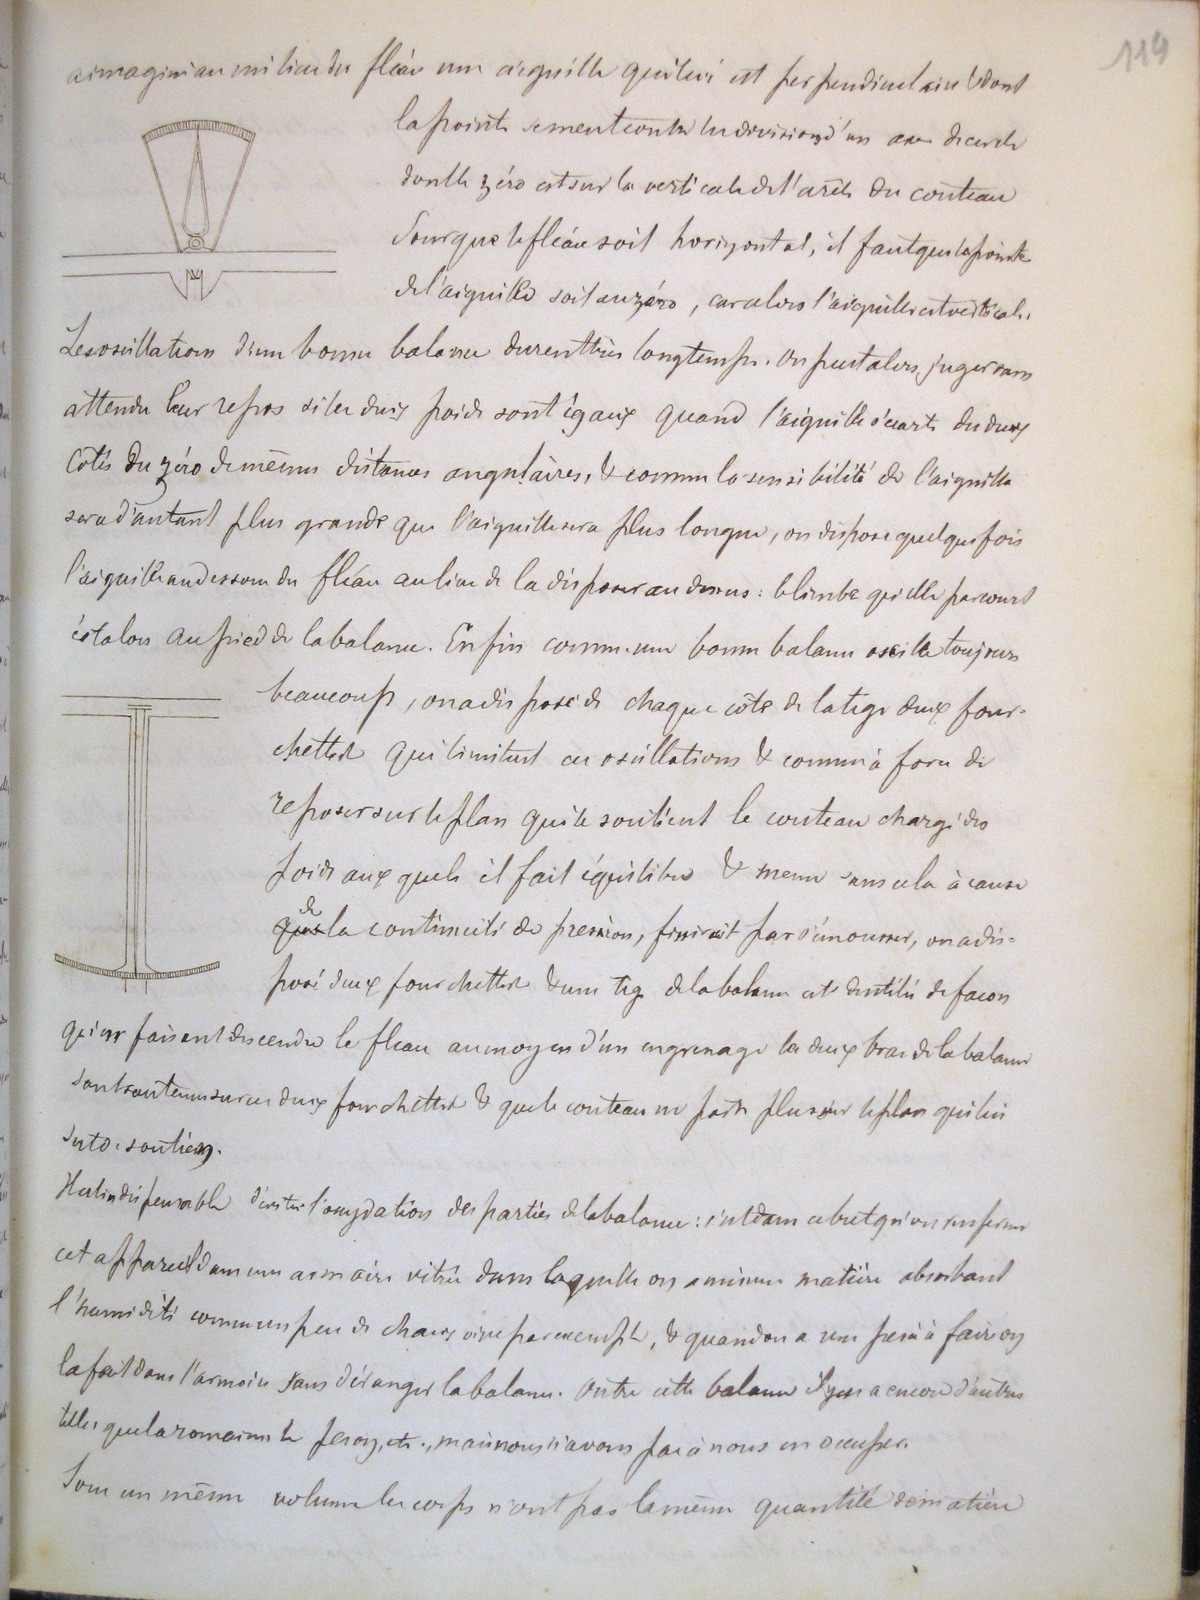 119
a imaginé au milieu du fléau une aiguille qui lui est perpendiculaire & dont
la pointe se meut contre les divisions d'un arc de cercle
dont le zéro est sur la verticale de l'arête du couteau
Pour que le fléau soit horizontal, il faut que la pointe
de l'aiguille soit au zéro, car alors l'aiguille est verticale.
Les oscillations d'une bonne balance durent très longtemps. On peut alors juger sans
attendre leur repos si les deux poids sont égaux quand l'aiguille s'écarte des deux
côtés du zéro de mêmes distances angulaires, & comme la sensibilité de l'aiguille
sera d'autant plus grande que l'aiguille sera plus longue, on dispose quelquefois
l'aiguille au dessous du fléau au lieu de la disposer au dessus : le limbe qu'elle parcourt
est alors au pied de la balance. Enfin comme une bonne balance oscille toujours
beaucoup, on a disposé de chaque côté de la tige deux four-
chettes qui limitent ces oscillations & comme à force de
reposer sur le plan qui le soutient le couteau chargé des
poids auxquels il fait équilibre & même sans cela à cause
de la continuité de pression, finirait par s'émousser, on a dis-
posé deux fourchettes & une tige de la balance est dentelée de façon
qu'en faisant descendre le fléau au moyen d'un engrenage les deux bras de la balance
sont soutenus sur ces deux fourchettes & que le couteau ne porte plus sur le plan qui lui
sert de soutien.
Il est indispensable d'éviter l'oxydation des parties de la balance : c'est dans ce but qu'on renferme
cet appareil dans une armoire vitrée dans laquelle on a mis une matière absorbant
l'humidité comme un peu de chaux vive par exemple, & quand on a une pesée à faire on
la fait dans l'armoire sans déranger la balance. Outre cette balance il y en a encore d'autres
telles que la romaine le peson, etc., mais nous n'avons pas à nous en occuper.
Sous un même volume les corps n'ont pas la même quantité de matière